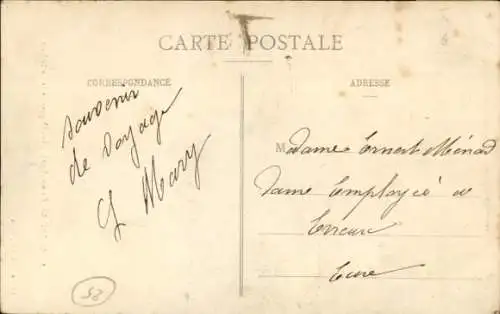 CARTE POSTALE
CORRESPONDANCE
ADRESSE
Souvenir
de voyage
G Mary
Madame Ernest Ménard
Dame Employée à
Evreux
Eure
52